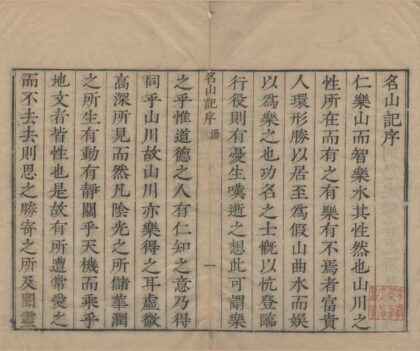 名山記序
仁樂山而智樂水其性然也山川之
性所在而有之有樂有不焉者富貴
人環形勝以居至爲假山曲水而娛
以爲樂之也功名之士慨以忼登臨
行役則有憂生嘆逝之想此可謂樂
名山記序
湯
一
之乎惟道德之人有仁知之意乃得
同乎山川故山川亦樂得之耳虛微
高深所見而然凡陰光之所儲華潤
之所生有動有靜關乎天機而乘乎
地文者皆性也是故有所遭常愛之
而不去去則思之勝寄之所及關靈